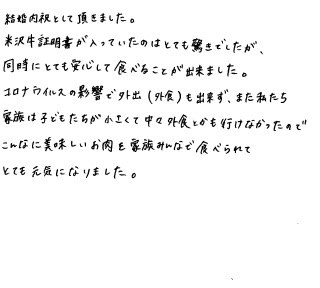 結婚内祝として頂きました。
米沢牛証明書が入っていたのはとても驚きでしたが、
同時にとても安心して食べることが出来ました。
コロナウイルスの影響で外出(外食)も出来ず、また私たち
家族は子どもたちが小さくて中々外食とかも行けなかったので
こんなに美味しいお肉を家族みんなで食べられて
とても元気になりました。